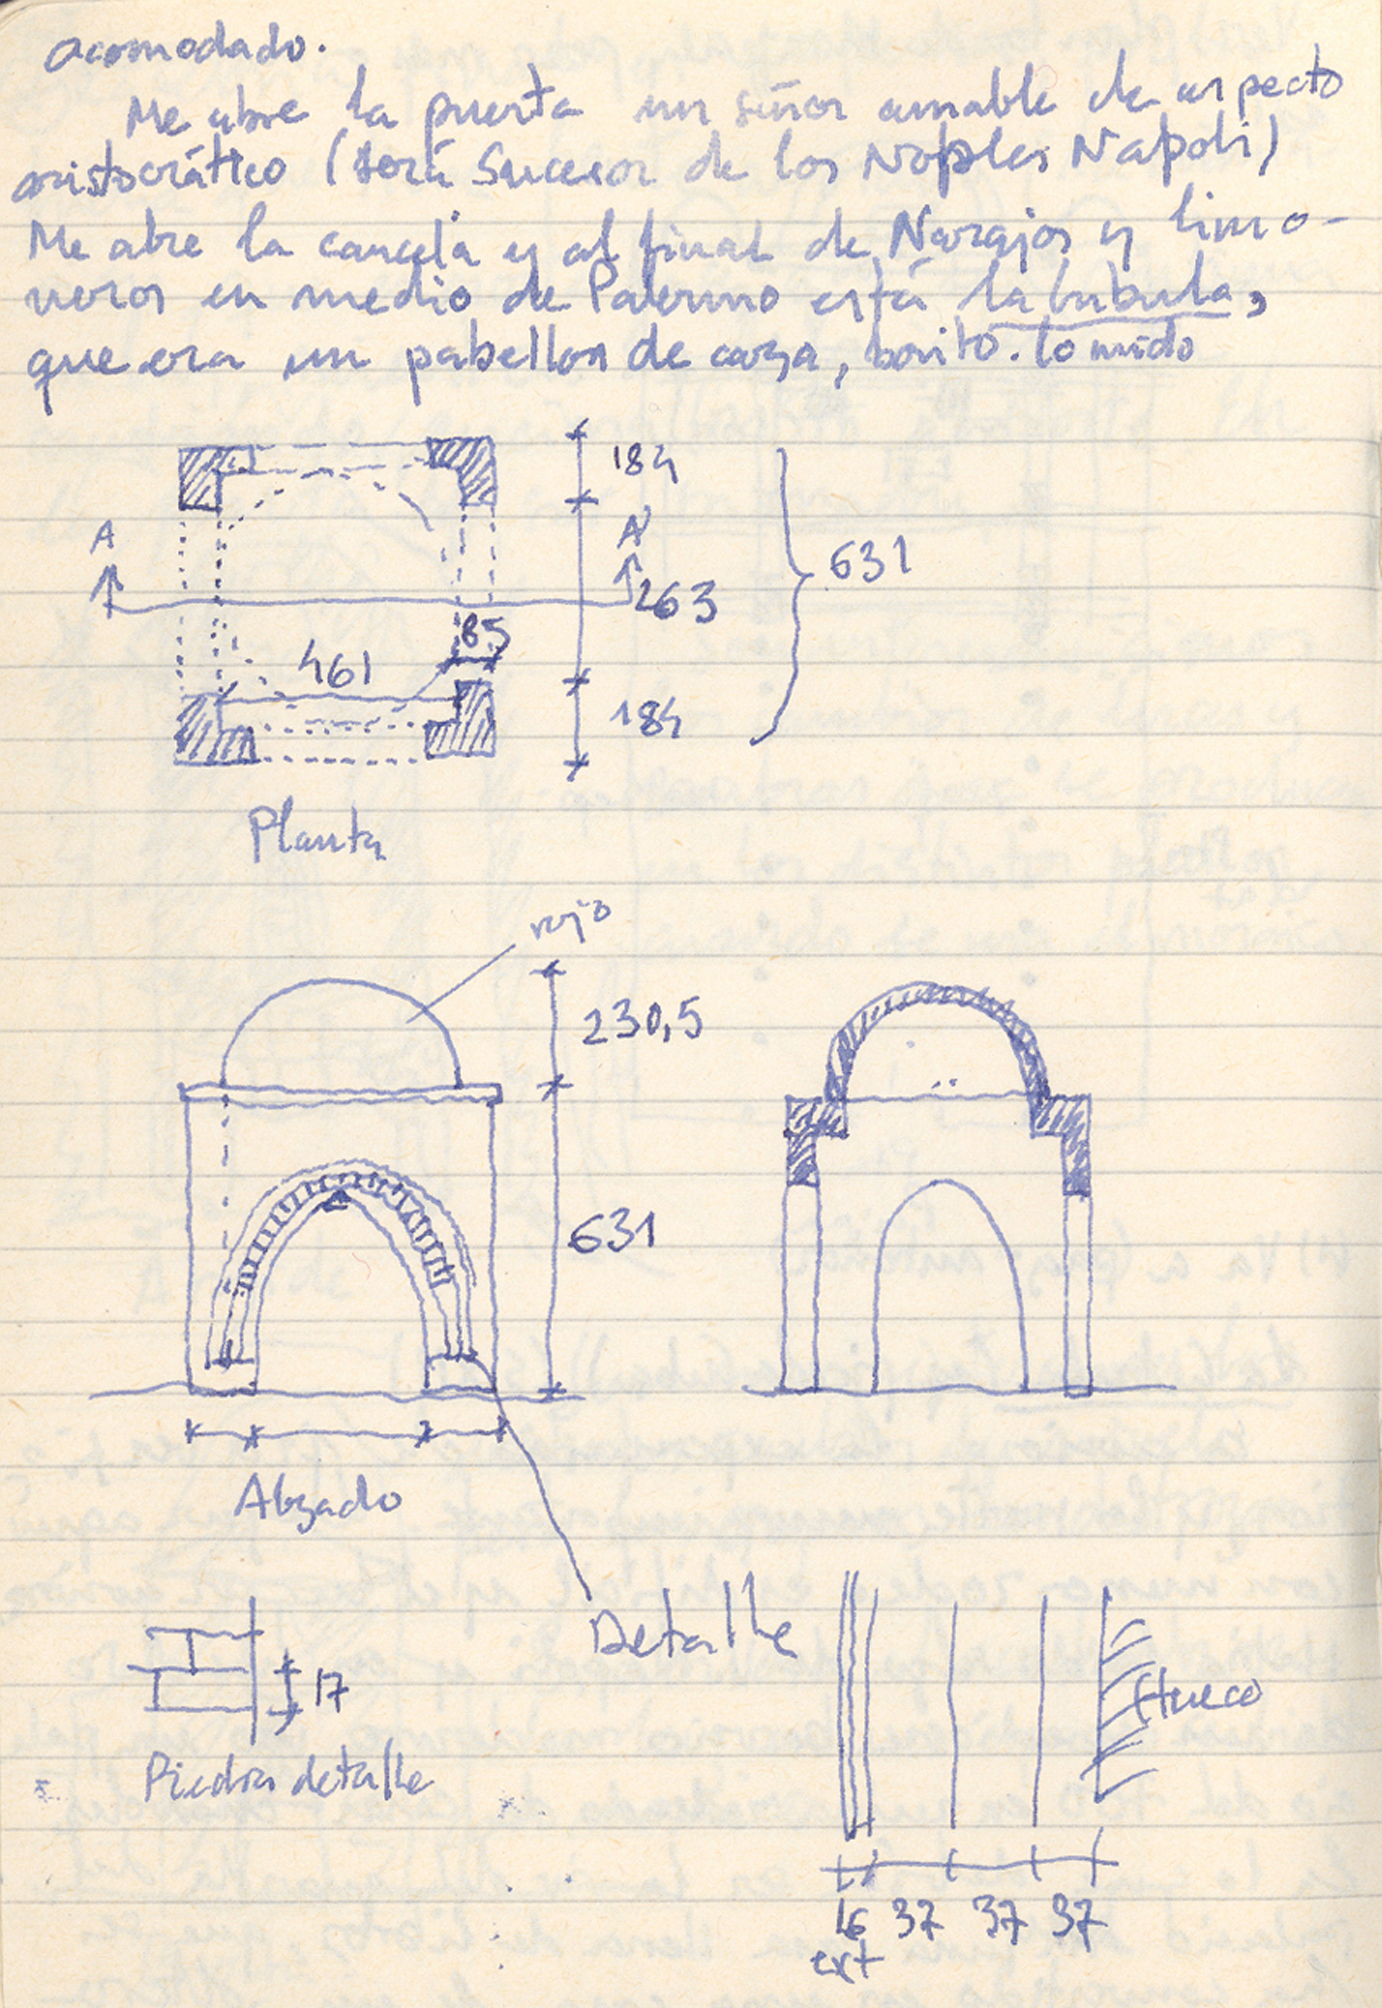 acomodado.
Me abre la puerta un señor amable de aspecto
aristocrático (será Sucesor de los Nobles Napoli)
Me abre la cancela y al final de Naranjos y limo-
neros en medio de Palermo está la Cubula,
que era un pabellon de caza, bonito. lo mido
184
A A'
631
263
85
461
184
Planta
rojo
230,5
631
Alzado
Detalle
Hueco
17
Piedra detalle
16 37 37 37
ext